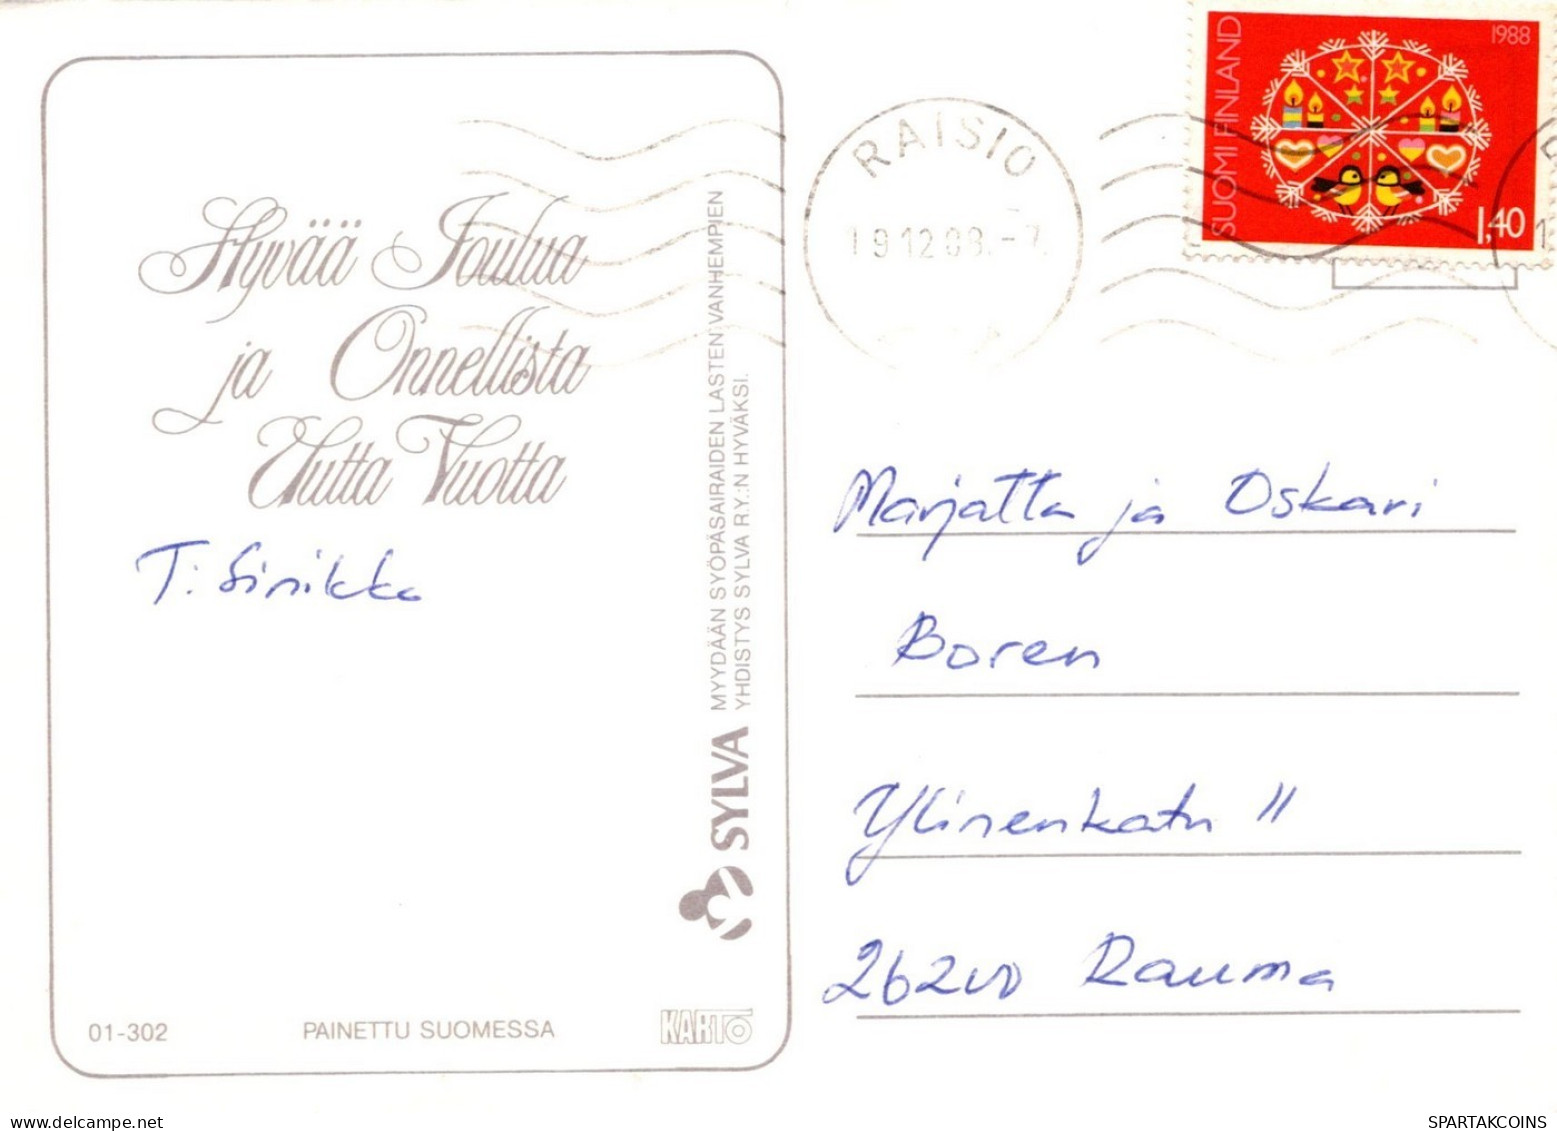 Hyvää Joulua
ja Onnellista
Uutta Vuotta
T: Sinikka
MYYDÄÄN SYÖPÄSAIRAIDEN LASTEN VANHEMPIEN
YHDISTYS SYLVA R.Y:N HYVÄKSI.
SYLVA
01-302
PAINETTU SUOMESSA
KARTO
RAISIO
SUOMI FINLAND
1988
1,40
Marjatta ja Oskari
Boren
Ylinenkatu 11
26200 Rauma
SPARTAKCOINS